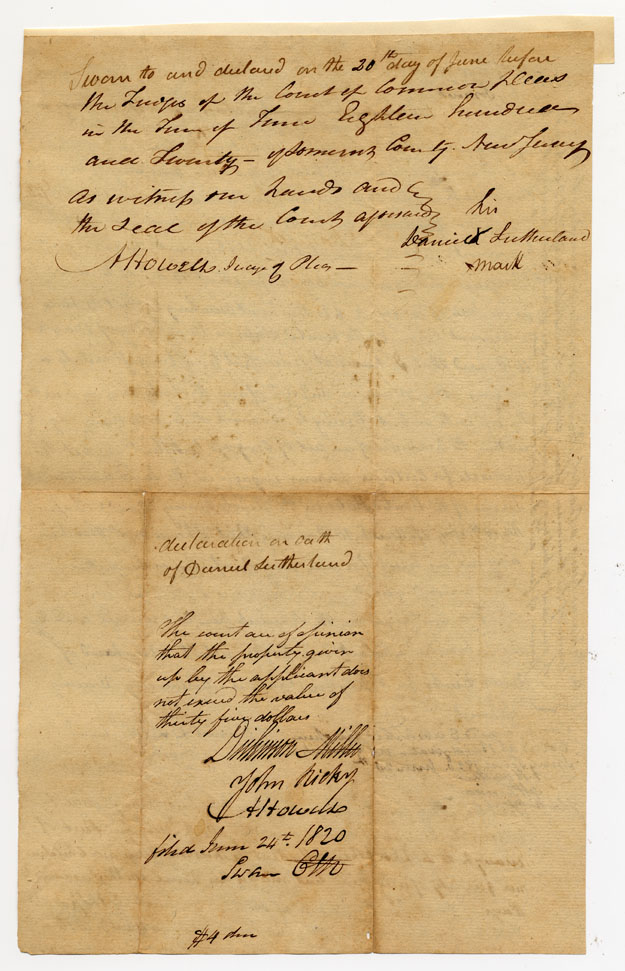 Sworn to and declared on the 20th day of June before
the Judges of the Court of Common pleas
in the Term of June Eighteen hundred
and Twenty – of Somerset County. New Jersey
As witness our hands and
the seal of the Court aforesaid
his
Daniel X Sutherland
mark
AHowell Judge of Pleas –
declaration on oath
of Daniel Sutherland
The court are of opinion
that the property given
up by the applicant does
not exceed the value of
thirty five dollars
Dickinson Miller
John
AHowell
filed June 24th. 1820
Swan
#4